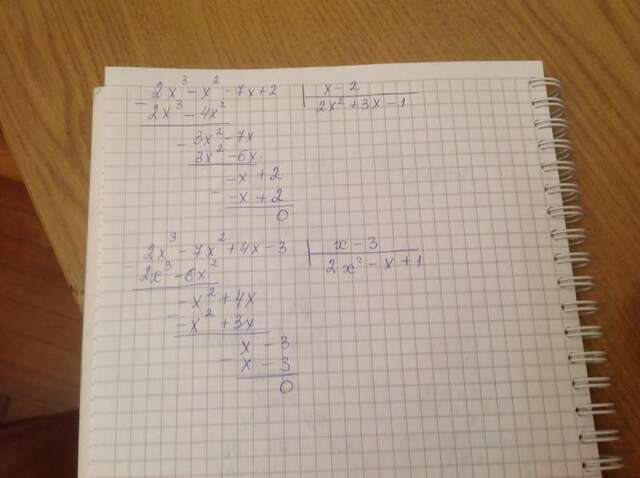 2x³ - x² - 7x + 2 | x - 2
- 2x³ - 4x² | 2x² + 3x - 1
- 3x² - 7x
3x² - 6x
- -x + 2
-x + 2
0
2x³ - 7x² + 4x - 3 | x - 3
2x³ - 6x² | 2x² - x + 1
- -x² + 4x
-x² + 3x
- x - 3
x - 3
0